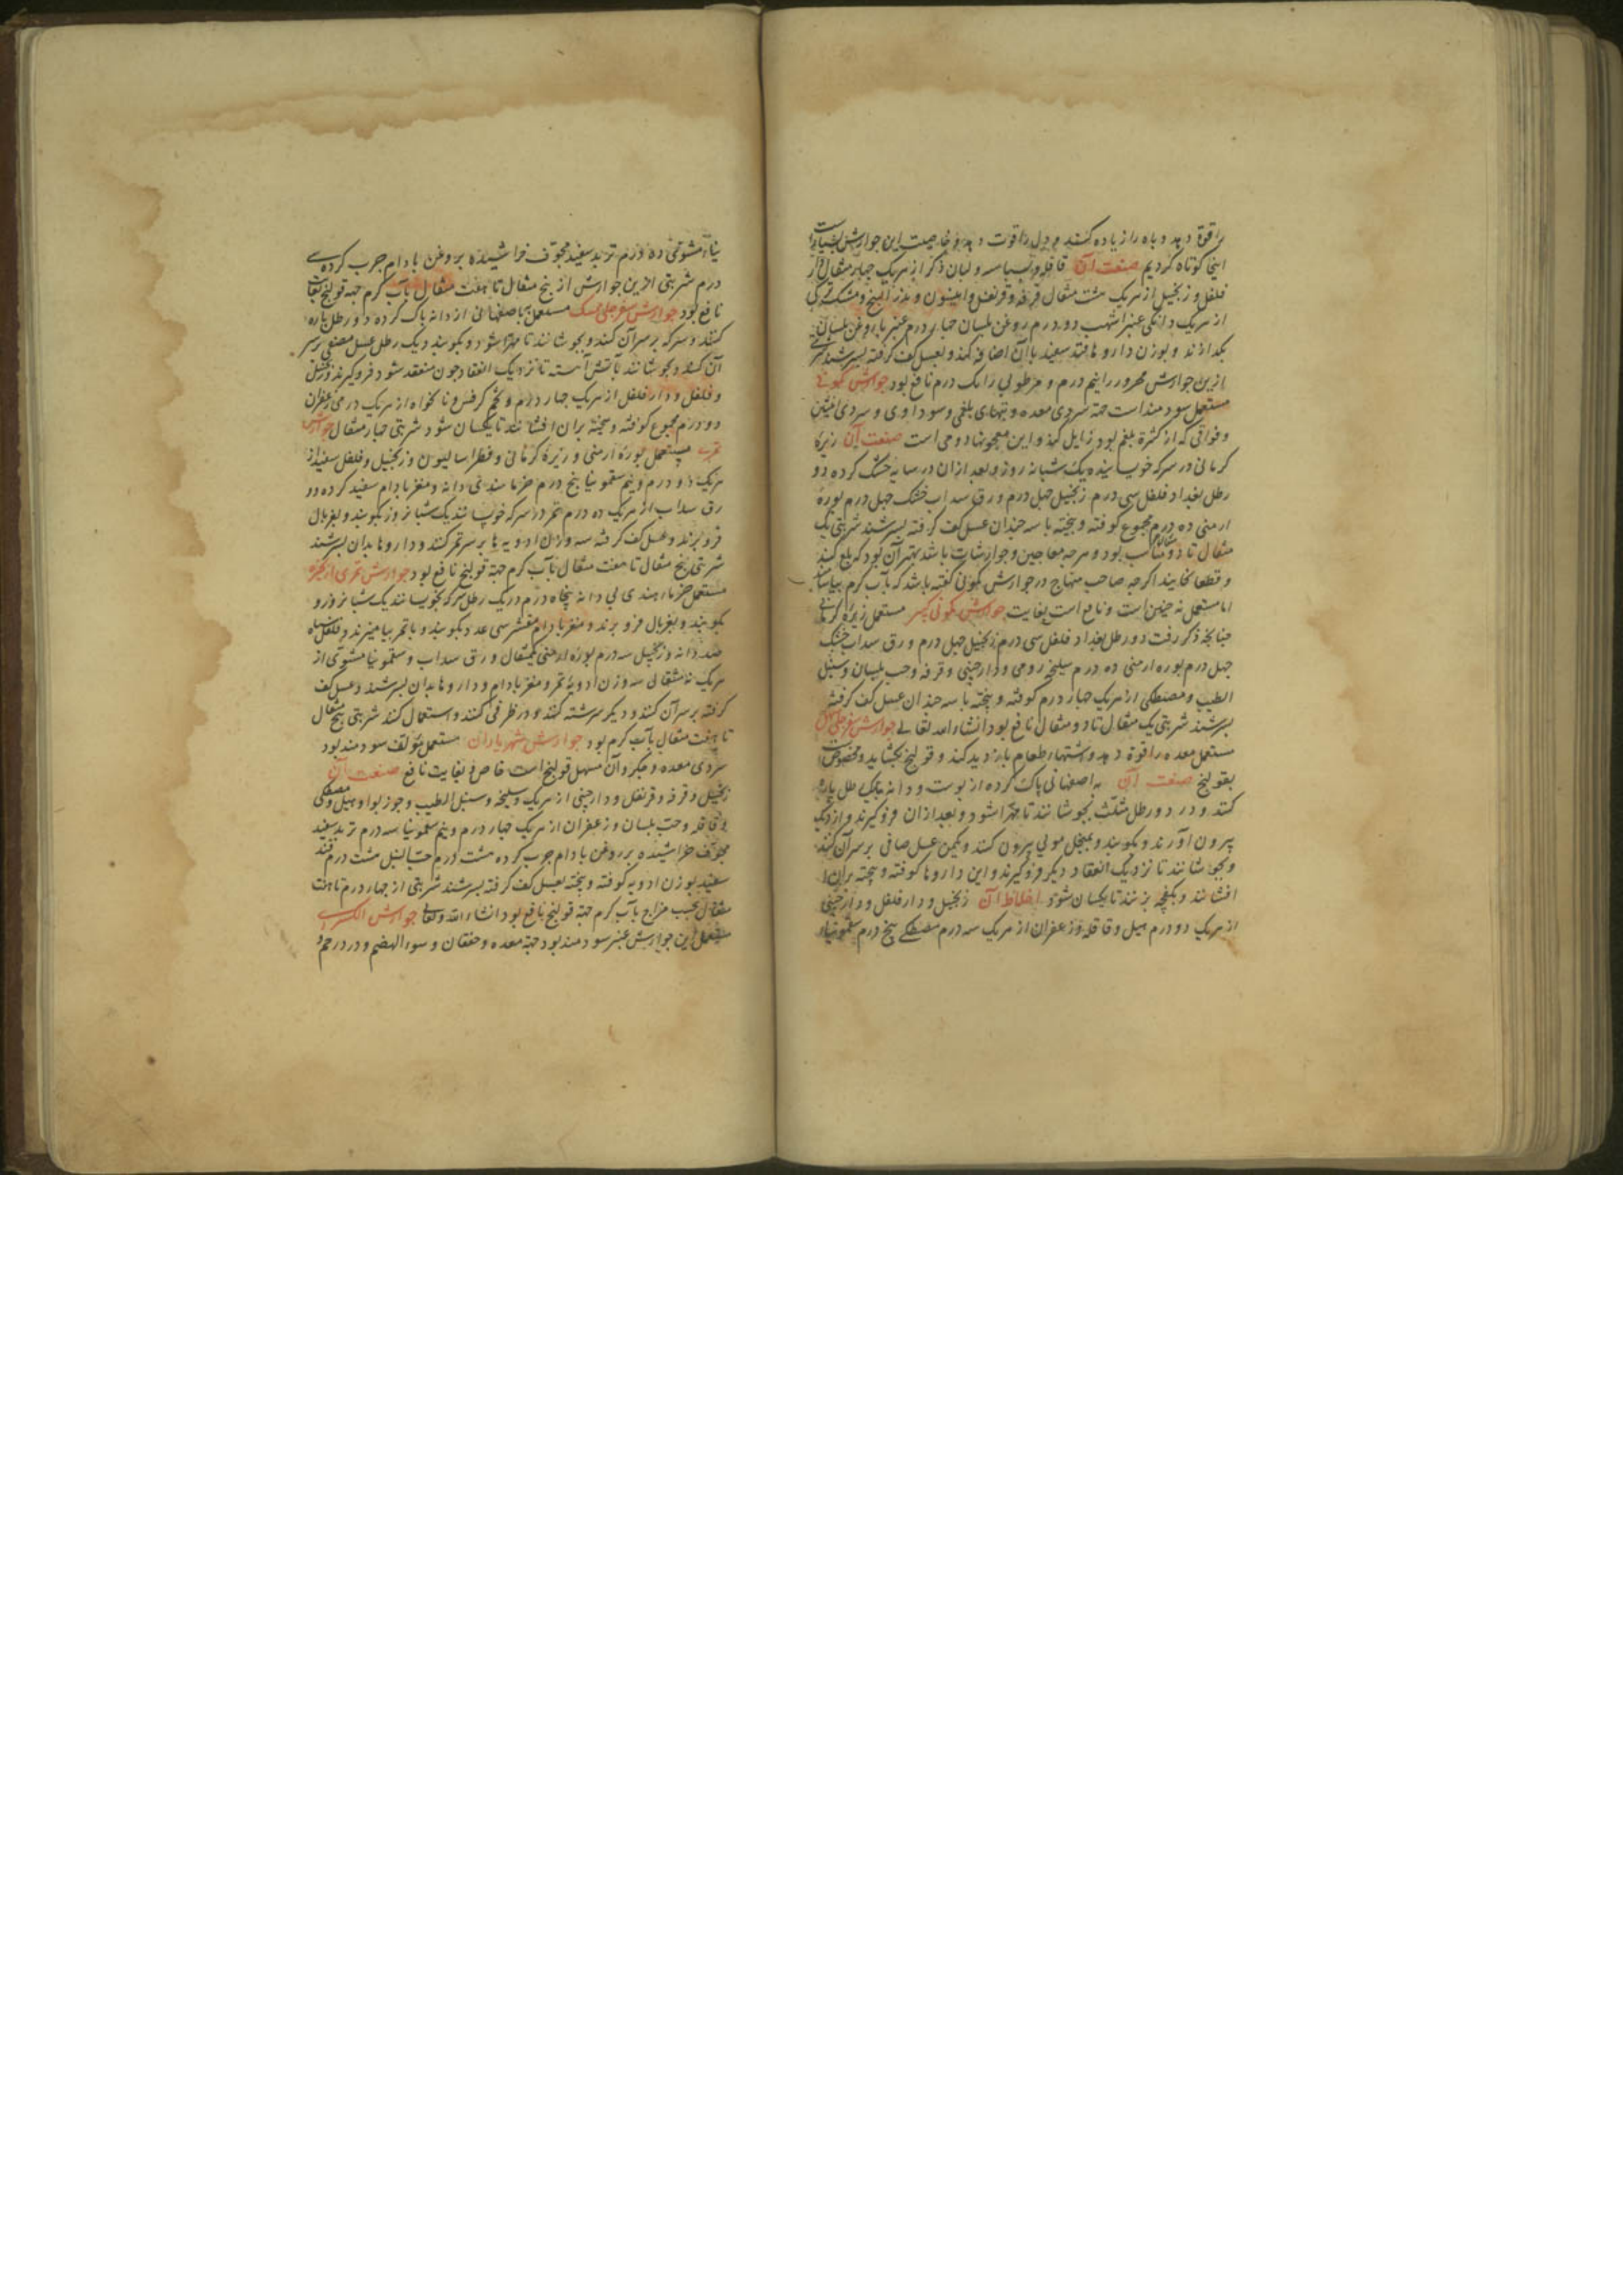 را قوة دهد و باه را زیاده کنند و دل را قوت دهد و خاصیت این جوارش بسیارست
اینجا کوتاه کردیم صنعت آن قاقله و بسباسه و لبان ذکر از هریک چهار مثقال دار
فلفل و زنجبیل از هریک هشت مثقال قرفه و قرنفل و انیسون و بذر البنج و مشک ترکی
از هریک دانکی عنبر اشهب دو درم روغن بلسان چهار درم عنبر با روغن بلسان
بکدازند و بوزن داروها قند سفید با آن اضافه کنند و بعسل کف کرفته بسرشند شربتی
ازین جوارش محرور را نیم درم و مرطوبی را یک درم نافع بود جوارش کمونی
مستعمل سودمند است جهة سردی معده و تبهای بلغمی و سوداوی و سردی انثیین
و فواقی که از کثرة بلغم بود زایل کند و این معجونها دومی است صنعت آن زیرهٔ
کرمانی در سرکه خویسانیده یک شبانه روز و بعد ازان در سایه خشک کرده دو
رطل بغداد فلفل سی درم زنجبیل چهل درم ورق سداب خشک چهل درم بورهٔ
ارمنی ده درم مجموع کوفته و بیخته با سه چندان عسل کف کرفته بسرشند شربتی یک
مثقال تا دو مثقال مناسب بود و هرچه معاجین و جوارشات باشد بهتر آن بود که بلع کنند
و قطعا نخایند اکرچه صاحب منهاج در جوارش کمونی کفته باشد که بآب کرم بیاشامند
اما مستعمل نه چنین است و نافع است بغایت جوارش کمونی کبیر مستعمل زیرهٔ کرمانی
چنانچه ذکر رفت دو رطل بغداد فلفل سی درم زنجبیل چهل درم ورق سداب خشک
چهل درم بوره ارمنی ده درم سلیخه رومی و دارچینی و قرفه و حب بلسان و سنبل
الطیب و مصطکی از هریک چهار درم کوفته و بیخته با سه چندان عسل کف کرفته
بسرشند شربتی یک مثقال تا دو مثقال نافع بود انشاء الله تعالی جوارش سفرجلی مسهل
مستعمل معده را قوة دهد و اشتهاء طعام بازدید کند و قولنج بکشاید و مخصوص
بقولنج صنعت آن به اصفهانی پاک کرده از پوست و دانه یک رطل پاره
کنند و در دو رطل مثلث بجوشانند تا مهرا شود و بعد ازان فروکیرند و از دیک
بیرون آورند و بکوبند و بمنخل مویی بیرون کنند و یکمن عسل صافی بر سر آن کنند
و بجوشانند تا نزدیک انعقاد دیکر فروکیرند و این داروها کوفته و بیخته بران
افشانند و بکفچه بزنند تا یکسان شود اخلاط آن زنجبیل و دارفلفل و دارچینی
از هریک دو درم هیل و قاقله و زعفران از هریک سه درم مصطکی پنج درم سقمونیاء
نیاء مشوی ده درم تربد سفید مجوف خراشیده بروغن بادام چرب کرده سی
درم شربتی ازین جوارش از پنج مثقال تا هفت مثقال بآب کرم جهة قولنج بغایت
نافع بود جوارش سفرجلی ممسک مستعمل به اصفهانی از دانه پاک کرده دو رطل پاره
کنند و سرکه بر سر آن کنند و بجوشانند تا مهرا شود و بکوبند و یک رطل عسل مصفی بر سر
آن کنند و بجوشانند بآتش آهسته تا نزدیک انعقاد چون منعقد شود فروکیرند زنجبیل
و فلفل و دارفلفل از هریک چهار درم و تخم کرفس و نانخواه از هریک درمی زعفران
دو درم مجموع کوفته و بیخته بران افشانند تا یکسان شود شربتی چهار مثقال جوارش
تمری مستعمل بورهٔ ارمنی و زیرهٔ کرمانی و فطراسالیون و زنجبیل و فلفل سفید از
هریک دو درم و نیم سقمونیا پنج درم خرما هندی بی دانه و مغز بادام سفید کرده و و
رق سداب از هریک ده درم تمر در سرکه خویسانند یک شبانروز و بکوبند و بغربال
فروبرند و عسل کف کرفته سه وزن ادویه ها بر سر تمر کنند و داروها بدان بسرشند
شربتی پنج مثقال تا هفت مثقال بآب کرم جهة قولنج نافع بود جوارش تمری
مستعمل خرما هندی بی دانه پنجاه درم در یک رطل سرکه بخویسانند یک شبانروز و
بکوبند و بغربال فروبرند و مغز بادام مقشر سی عدد بکوبند و با تمر بیامیزند و فلفل سیاه
صد دانه و زنجبیل سه درم بوره ارمنی یکمثقال ورق سداب و سقمونیا مشوی از
هریک نه مثقال سه وزن ادویه تمر و مغز بادام و داروها بدان بسرشند و عسل کف
کرفته بر سر آن کنند و دیکر سرشته کنند و در ظرفی کنند و استعمال کنند شربتی پنج مثقال
تا هفت مثقال بآب کرم بود جوارش شهریاران مستعمل مؤلف سودمند بود
سردی معده و جکر و آن مسهل قولنج است خاص و بغایت نافع صنعت آن
زنجبیل و قرفه و قرنفل و دارچینی از هریک و سلیخه و سنبل الطیب و جوز بوا و هیل و مصطکی
و قاقله و حب بلسان و زعفران از هریک چهار درم و نیم سقمونیا سه درم تربد سفید
مجوف خراشیده بروغن بادام چرب کرده هشت درم حب النیل هشت درم قند
سفید بوزن ادویه کوفته و بیخته بعسل کف کرفته بسرشند شربتی از چهار درم تا هفت
مثقال بحسب مزاج بآب کرم جهة قولنج نافع بود انشاء الله تعالی جوارش
مستعمل این جوارش عنبر سودمند بود جهة معده و خفقان و سوء الهضم و درد رحم و